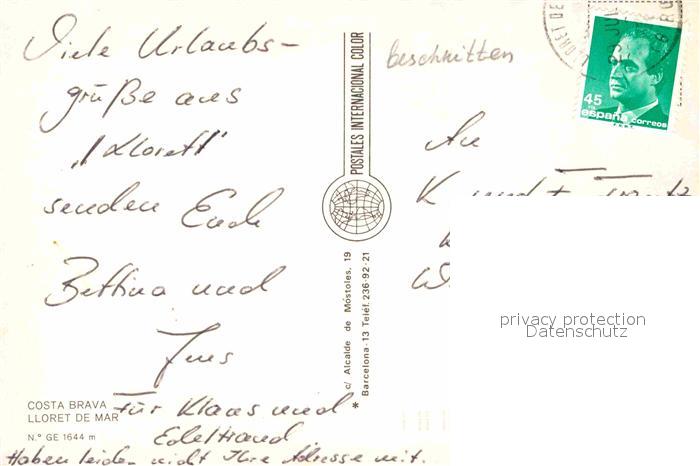 Viele Urlaubs-
grüße aus
"Llorett"
senden Euch
Bettina und
Jens
Für Klaus und
Edeltraud
Haben leider nicht Ihre Adresse mit.
COSTA BRAVA
LLORET DE MAR
N.º GE 1644 m
POSTALES INTERNACIONAL COLOR
c/ Alcalde de Móstoles, 19
Barcelona-13 Teléf. 236-92-21
*
beschnitten
45
PTA
españa correos
LLORET DE
An
K und F
privacy protection
Datenschutz